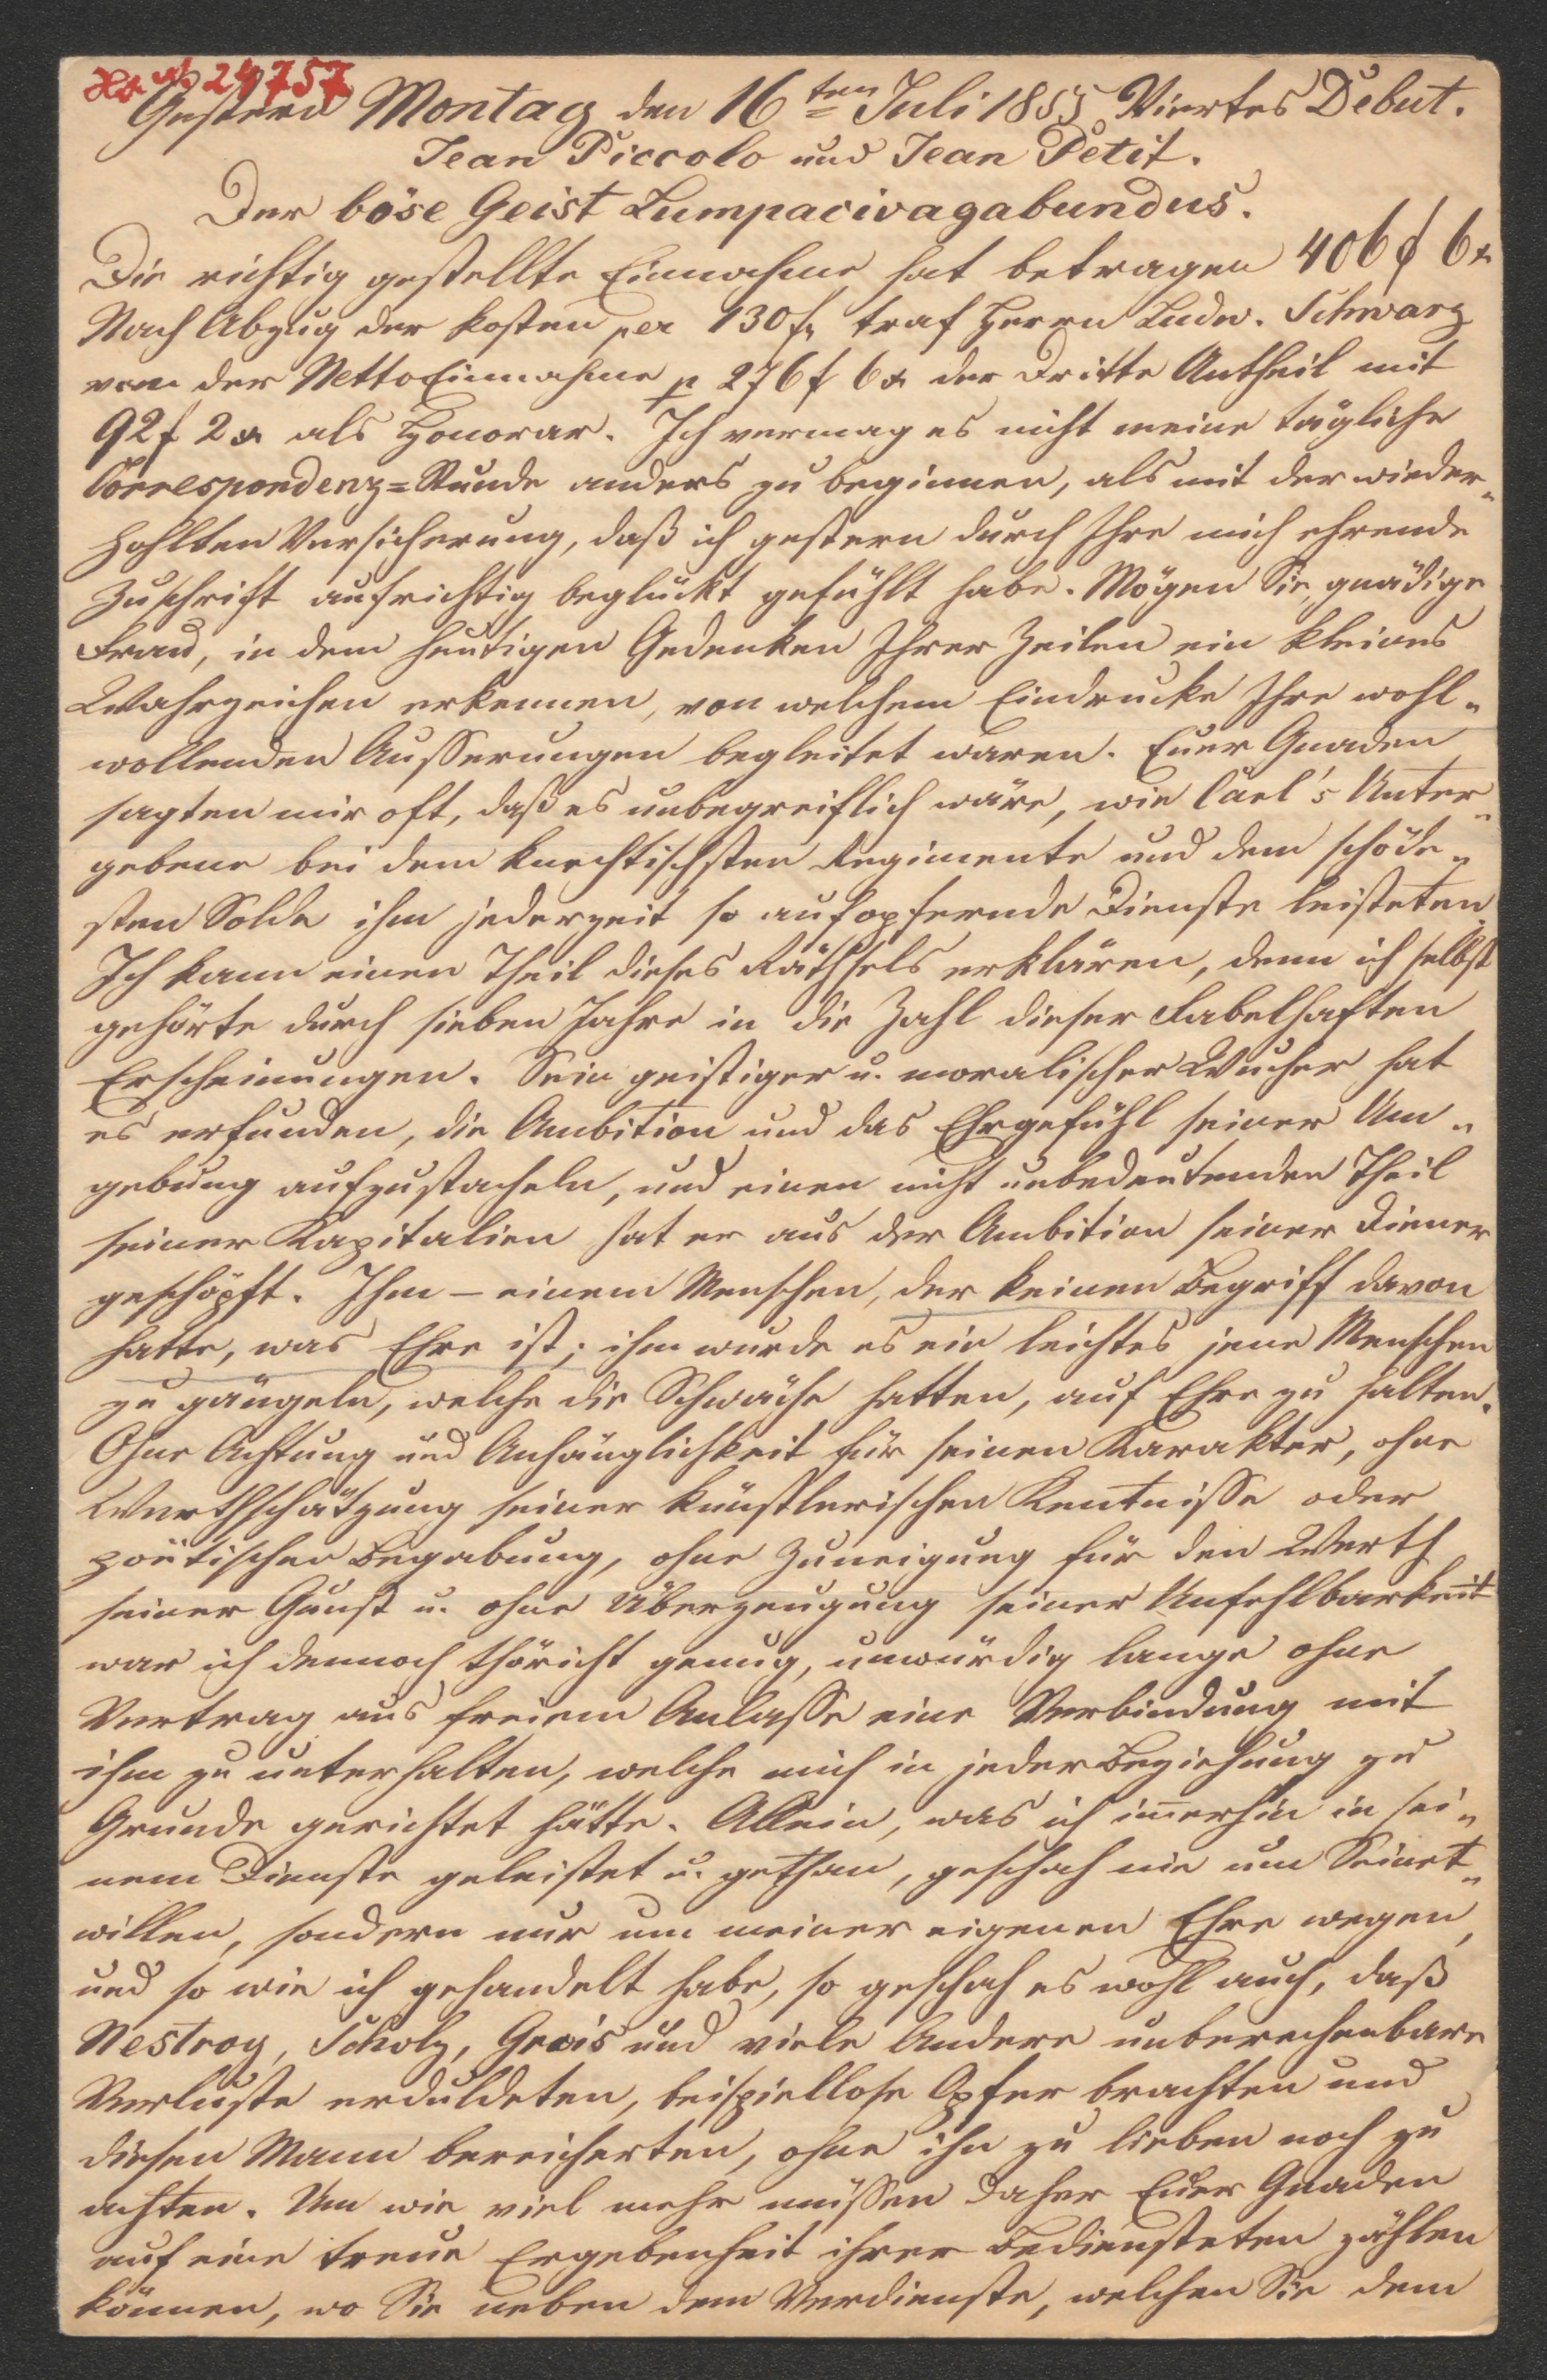 24757
Gestern Montag den 16ten Juli 1855 Viertes Debut.
Jean Piccolo und Jean Petit.
Der böse Geist Lumpacivagabundus.
Die richtig gestellte Einnahme hat betragen 406 f 6 x
Nach Abzug der Kosten per 130 f, traf Herrn Ludw. Schwarz
von der Netto Einnahme p 276 f 6 x der dritte Antheil mit
92 f 2 x als Honorar. Ich vermag es nicht meine tägliche
Correspondenz=Stunde anders zu beginnen, als mit der wieder-
hohlten Versicherung, daß ich gestern durch Ihre mich ehrende
Zuschrift aufrichtig beglückt gefühlt habe. Mögen Sie, gnädige
Frau, in dem heutigen Gedenken Ihrer Zeilen ein kleines
Wahrzeichen erkennen, von welchem Eindrucke Ihre wohl-
wollenden Ausserungen begleitet waren. Euer Gnaden
sagten mir oft, daß es unbegreiflich wäre, wie Carl's Unter-
gebene bei dem knechtischsten Regimente und dem schöde-
sten Solde ihm jederzeit so aufopfernde Dienste leisteten.
Ich kann einen Theil dieses Räthsels erklären, denn ich selbst
gehörte durch sieben Jahre in die Zahl dieser fabelhaften
Erscheinungen. Sein geistiger u. moralischer Wucher hat
es erfunden, die Ambition und das Ehrgefühl seiner Um-
gebung aufzustacheln, und einen nicht unbedeutenden Theil
seiner Kapitalien hat er aus der Ambition seiner Diener
geschöpft. Ihm – einem Menschen, der keinen Begriff davon
hatte, was Ehre ist; ihm wurde es ein leichtes jene Menschen
zu gängeln, welche die Schwäche hatten, auf Ehre zu halten.
Ohne Achtung und Anhänglichkeit für seinen Karakter, ohne
Werthschätzung seiner künstlerischen Kentnisse oder
poëtischer Begabung, ohne Zuneigung für den Werth
seiner Gunst u. ohne Überzeugung seiner Unfehlbarkeit
war ich dennoch thöricht genug, unwürdig lange ohne
Vertrag aus freiem Anlasse eine Verbindung mit
ihm zu unterhalten, welche mich in jeder Beziehung zu
Grunde gerichtet hätte. Allein, was ich im̅erhin in sei-
nem Dienste geleistet u. gethan, geschah nie um Seinet-
willen, sondern nur um meiner eigenen Ehre wegen,
und so wie ich gehandelt habe, so geschah es wohl auch, daß
Nestroy, Scholz, Grois und viele Andere unberechenbare
Verluste erduldeten, beispiellose Opfer brachten und
diesen Mann bereicherten, ohne ihn zu lieben noch zu
achten. Um wie viel mehr müssen daher Euer Gnaden
auf eine treue Ergebenheit ihrer Bediensteten zählen
können, wo Sie neben dem Verdienste, welchen Sie dem